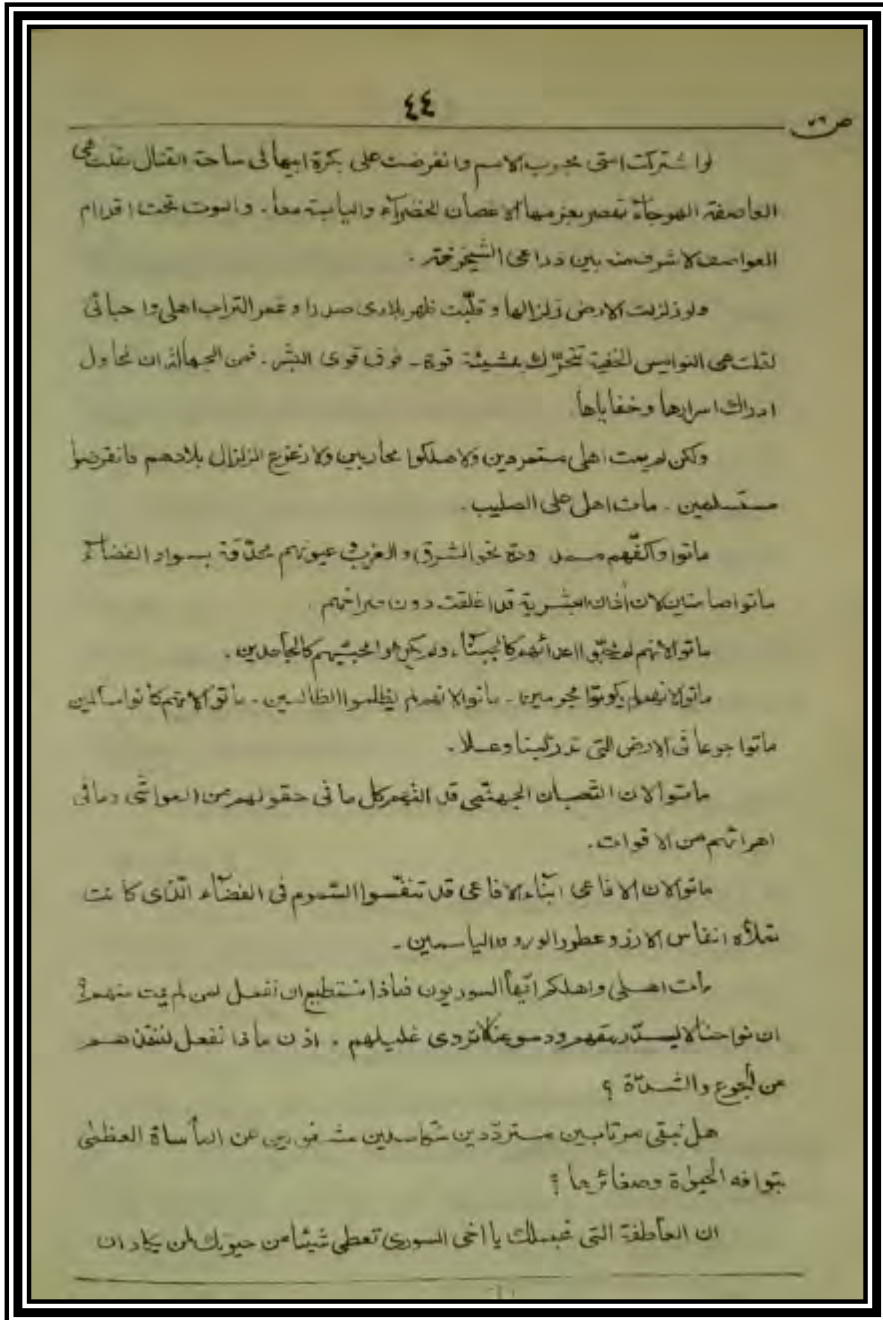 ٤٤
ص ٧٦
لو اشتركت امتى بحروب الامم وانقرضت على بكرة ابيها فى ساحة القتال لقلت هى
العاصفة الهوجاء تقصر بعزمها الاغصان الخضراء واليابسة معا۔ والموت تحت اقدام
العواصف لاشرف منه بين ذراعى الشيخوخة۔
ولو زلزلت الارض زلزالها وقلبت ظهر بلادى صدرا وغمر التراب اهلى واحبائى
لقلت هى النواميس الخفية تتحرك بمشيئة قوة۔ فوق قوى البشر۔ فمن الجهالة ان نحاول
ادراك اسرارها وخفاياها
ولكن لم يمت اهلى متمردين ولا هلكوا محاربين ولا زعزع الزلزال بلادهم فانقرضوا
مستسلمين۔ مات اهلى على الصليب۔
ماتوا واكفهم ممدودة نحو الشرق والغرب عيونهم محدقة بسواد الفضاء
ماتوا صامتين لان آذان البشرية قد اغلقت دون صراخهم۔
ماتوا لانهم لم يحبوا اعدائهم كالجبناء، ولم يكرهوا محبيهم كالجاحدين۔
ماتوا لانهم لم يكونوا مجرمين۔ ماتوا لانهم لم يظلموا الظالمين۔ ماتوا لانهم كانوا مسالمين
ماتوا جوعا فى الارض التى تدر لبنا وعسلا۔
ماتوا لان الثعبان الجهنمى قد التهم كل ما فى حقولهم من المواشى وما فى
اهرائهم من الاقوات۔
ماتوا لان الافاعى ابناء الافاعى قد تنفسوا السموم فى الفضاء الذى كانت
تملأه انفاس الارز وعطور الورود والياسمين۔
مات اهلى واهلكم ايها السوريون فماذا نستطيع ان نفعل لمن لم يمت منهم؟
ان نواحنا لا يسد رمقهم ودموعنا لا تروى غليلهم۔ اذن ماذا نفعل لننقذهم
من الجوع والشدة ؟
هل نبقى مرتابين مترددين متكاسلين مشغولين عن المأساة العظمى
بتوافه الحيوة وصغائرها ؟
ان العاطفة التى تجعلك يا اخى السورى تعطى شيئا من حيوتك لمن يكاد ان